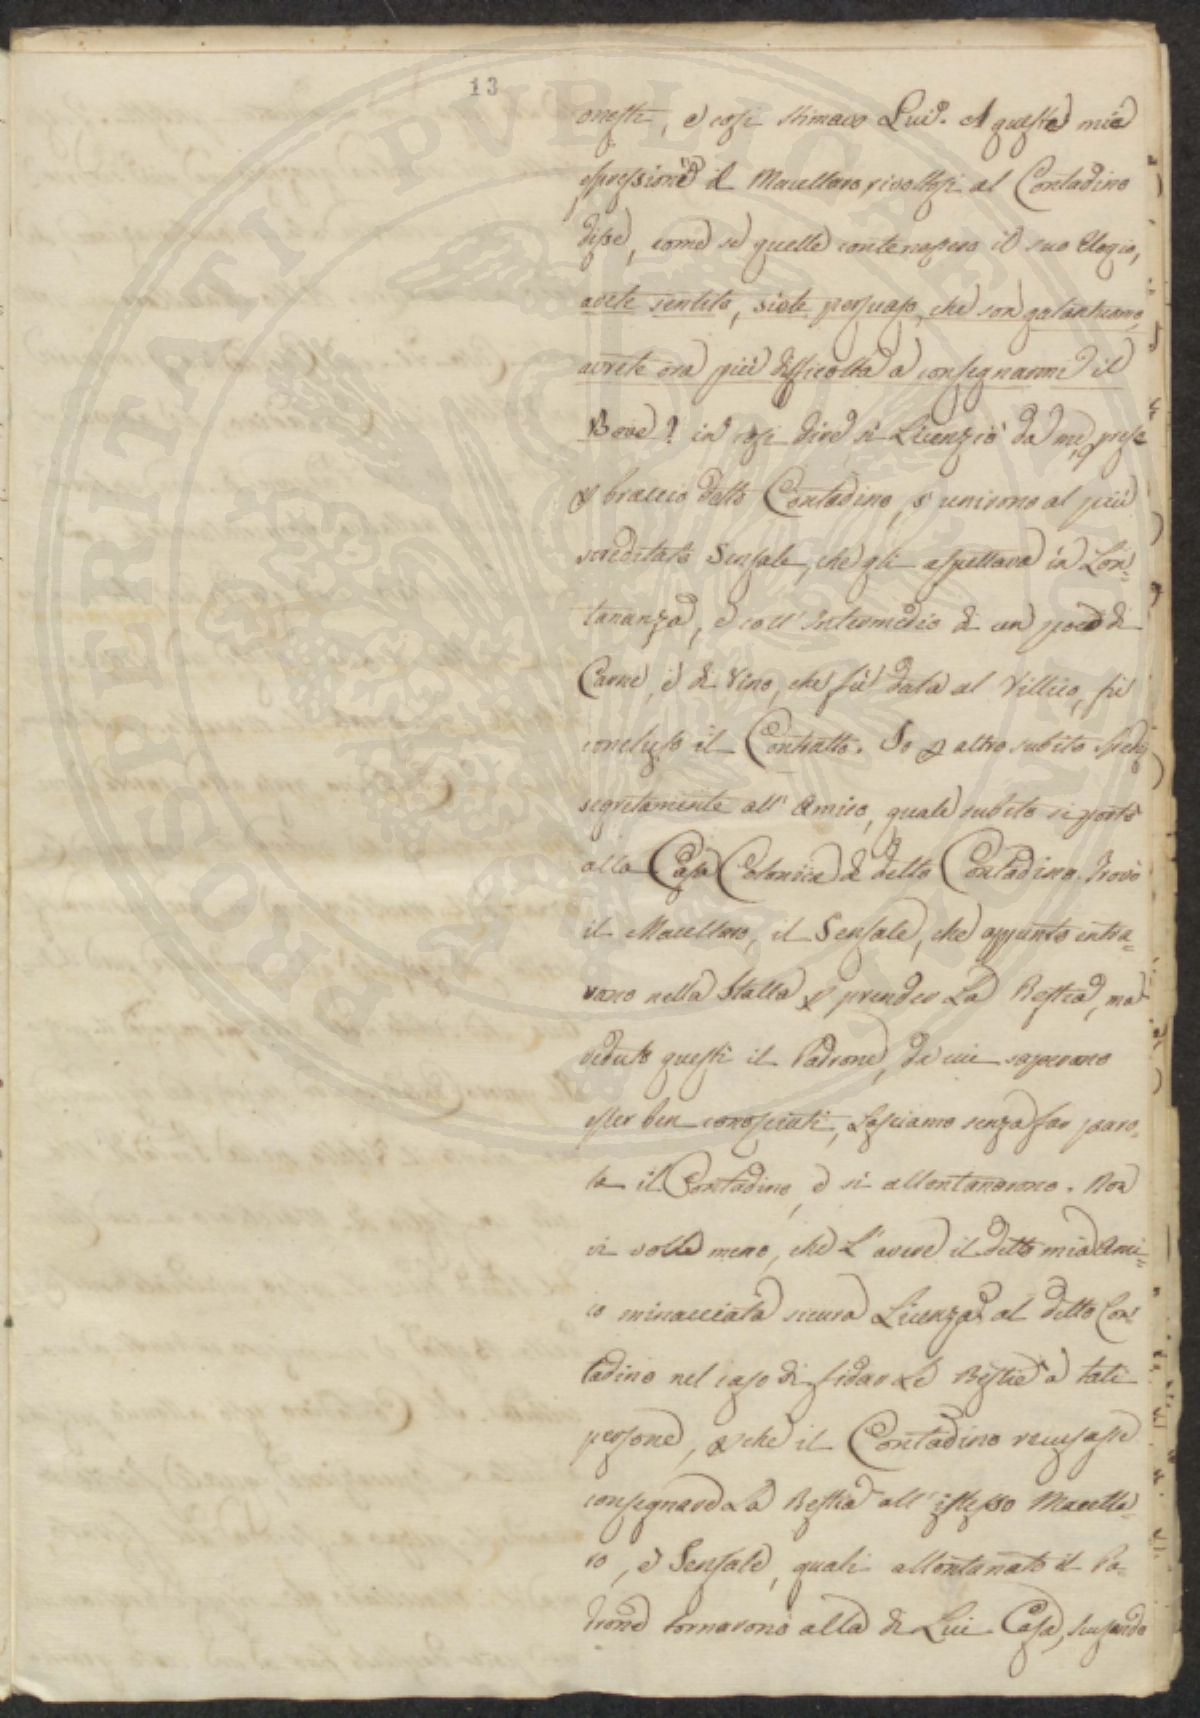 13
onesti, e così stimavo Lui. A queste mie
espressioni il Macellaro rivoltosi al Contadino
disse, come se quelle contenessero il suo Elogio,
avete sentito, siete persuaso, che son galantuomo,
avrete ora più difficoltà a consegnarmi il
Bove? in così dire si Licenziò da me, prese
p braccio detto Contadino, s' unirono al più
screditato Sensale, che gli aspettava in Lon=
tananza, e coll' Intermedio di un poco di
Carne, e di Vino, che fù data al Villico, fù
concluso il Contratto. Io p altro subito spedij
segretamente all' Amico, quale subito si portò
alla Casa Colonica di detto Contadino. Trovò
il Macellaro, il Sensale, che appunto entra=
vano nella Stalla p prender La Bestia, ma
veduto questi il Padrone, da cui sapevano
esser ben conosciuti, Lasciamo senza far paro-
la il Contadino, e si allontanorono. Non
vi volle meno, che L'avere il detto mio Ami=
co minacciata sicura Licenza al detto Con-
tadino nel caso di fidar Le Bestie a tali
persone, p che il Contadino recusasse
consegnare La Bestia all' istesso Macella=
ro, e Sensale, quali allontanato il Pa=
drone tornarono alla di Lui Casa, scusando
PROSPERITATI PVBLICAE